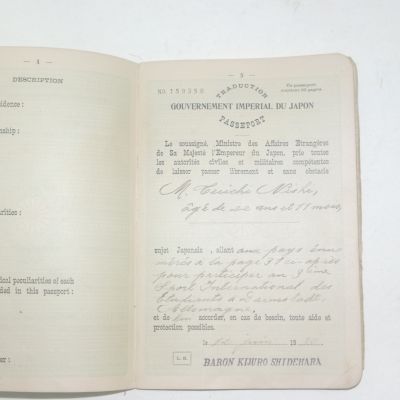 — 4 —
DESCRIPTION
idence:
nship:
arities:
ical peculiarities of each
ded in this passport:
er:
— 5 —
NO 159350
TRADUCTION
Ce passeport
contient 32 pages.
GOUVERNEMENT IMPERIAL DU JAPON
PASSEPORT
Le soussigné, Ministre des Affaires Étrangères
de Sa Majesté l'Empereur du Japon, prie toutes
les autorités civiles et militaires compétentes
de laisser passer librement et sans obstacle
M. Nishi,
âgé de 22 ans et 11 mois,
sujet Japonais, allant aux pays énu-
mérés à la page 31 ci-après
pour participer au
Sport International des
Étudiants à Darmstadt,
Allemagne,
et de lui accorder, en cas de besoin, toute aide et
protection possibles.
le juin 1930.
L. S.
BARON KIJURO SHIDEHARA